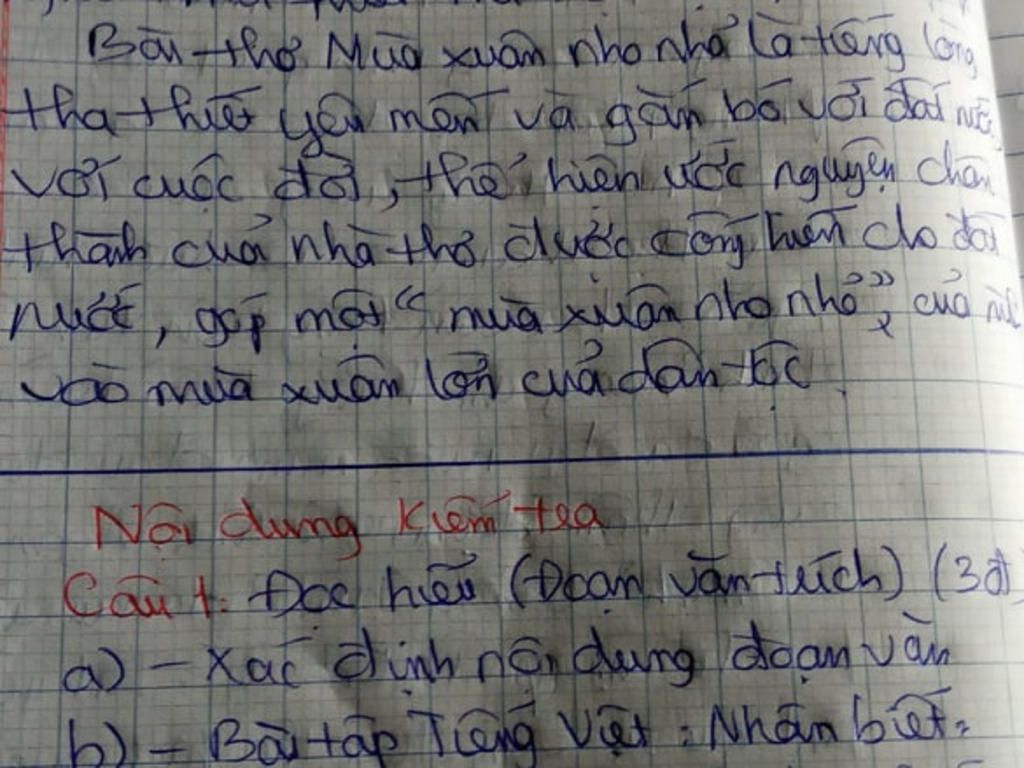 Bài thơ Mùa xuân nho nhỏ là tiếng lòng
tha thiết yêu mến và gắn bó với đất nước
với cuộc đời, thể hiện ước nguyện chân
thành của nhà thơ được cống hiến cho đất
nước, góp một “mùa xuân nho nhỏ” của
vào mùa xuân lớn của dân tộc.
Nội dung kiểm tra
Câu 1: Đọc hiểu (Đoạn văn trích) (3đ)
a) - Xác định nội dung đoạn văn
b) - Bài tập Tiếng Việt: Nhận biết: